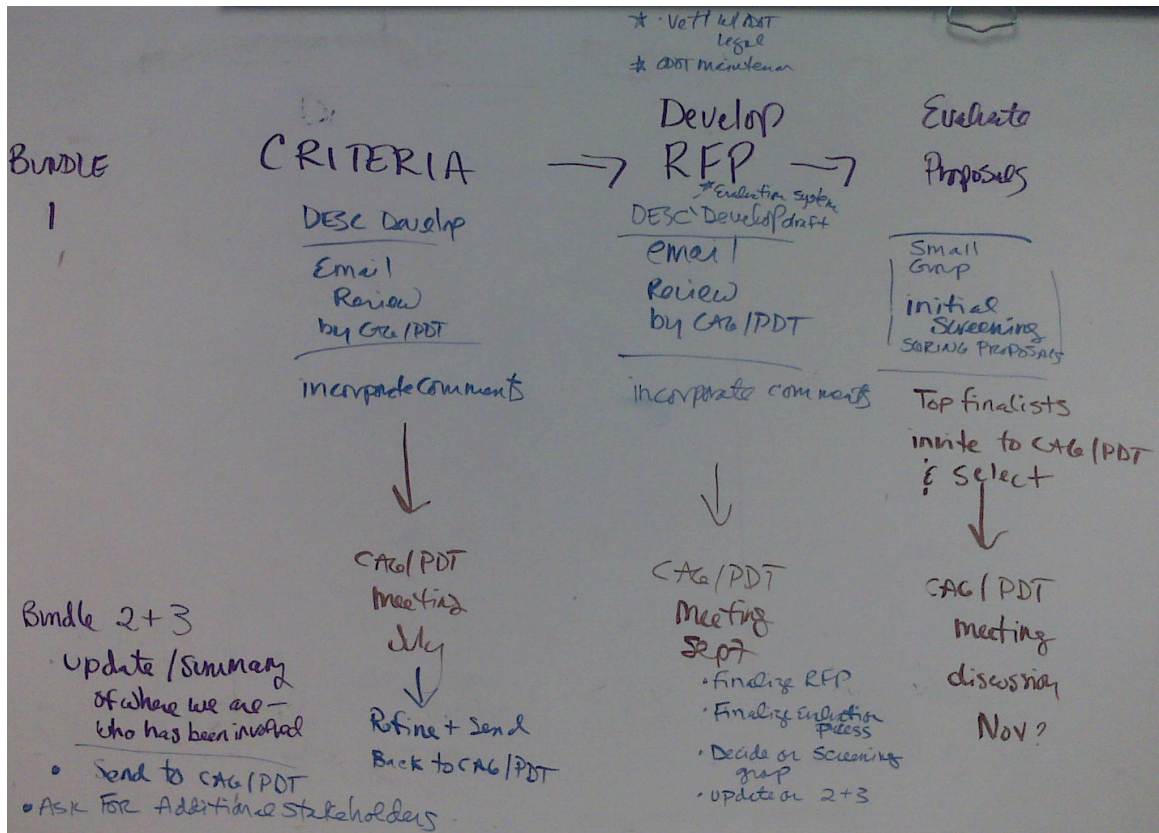 * · Vett w/ ADOT
legal
* ODOT maintenan
BUNDLE
1
CRITERIA
DESC Develop
Email
Review
by CAG/PDT
incorporate comments
CAG/PDT
meeting
July
Refine + Send
Back to CAG/PDT
Develop
RFP
* Evaluation system
DESC Develop draft
email
Review
by CAG/PDT
incorporate comments
CAG/PDT
Meeting
Sept
· Finalize RFP
· Finalize Evaluation
Process
· Decide on Screening
group
· update on 2+3
Evaluate
Proposals
Small
Group
initial
Screening
SCORING PROPOSALS
Top finalists
invite to CAG/PDT
& Select
CAG/PDT
meeting
discussion
Nov?
Bundle 2+3
update/summary
of where we are –
who has been involved
• Send to CAG/PDT
• ASK FOR Additional Stakeholders